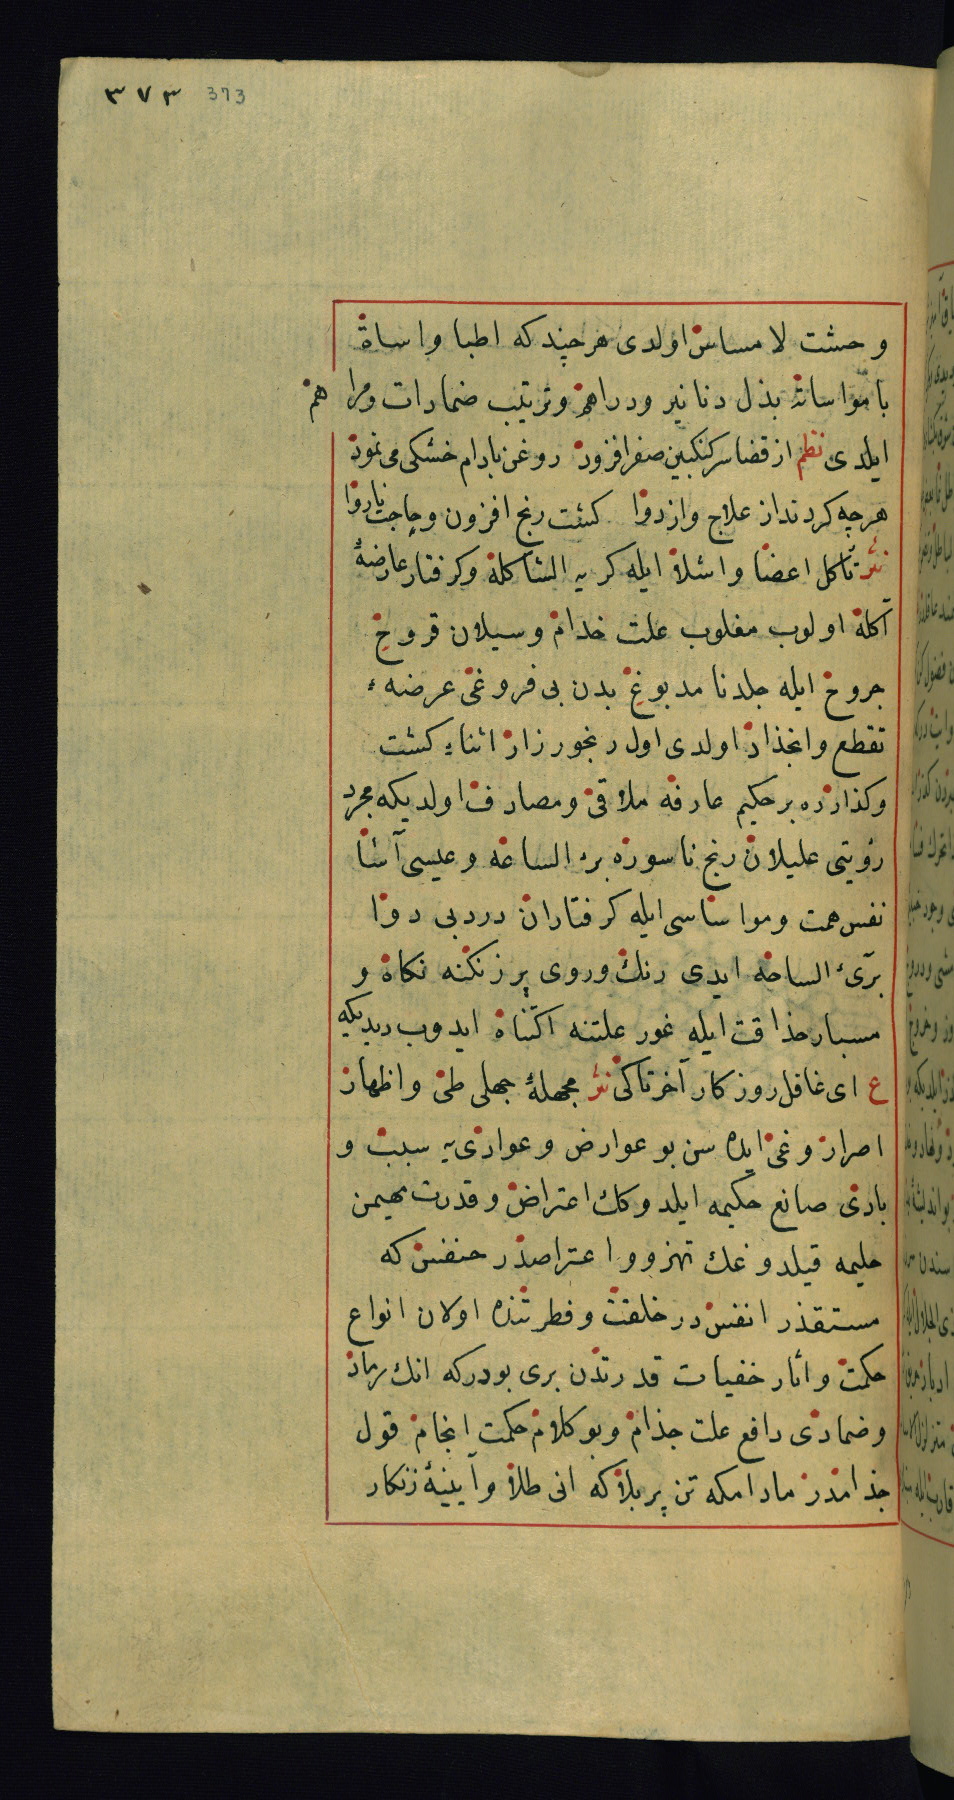 ٣٧٣ 373
وحشت لا مساس اولدی هر چند که اطبا و اساة
با مواساة بذل دنانیر و دراهم و ترتیب ضمادات و مراهم
ایلدی نظم از قضا سرکنکبین صفرا فزود روغن بادام خشکی می نمود
هر چه کردند از علاج و از دوا کشت رنج افزون و حاجت ناروا
نثر تآکل اعضا و اشلا ایله کریه الشاکله و کرفتار عارضۀ
آکله اولوب مغلوب علت خدام و سیلان قروح
جروح ایله جلد نا مدبوغ بدن بی فروغی عرضه ء
تقطع و انجذاذ اولدی اول رنجور زار اثناء کشت
و کذارده بر حکیم عارفه ملاقی و مصادف اولدیکه مجرد
رؤیتی علیلان رنج ناسوره برء الساعه و عیسی آشا
نفس همت و مواساسی ایله کرفتاران درد بی دوا
برئ الساحه ایدی رنك و روی پر زنکنه نکاه و
مسبار حذاقت ایله غور علتنه اکتناه ایدوب دیدیکه
ع ای غافل روزکار آخر تا کی نثر مجهلۀ جهلی طی و اظهار
اصرار و غی ایده سن بو عوارض و عوادی یه سبب و
بادی صانع حکیمه ایلدوکك اعتراض و قدرت مهیمن
حلیمه قیلدوغك تهزو و اعتراضدر خنفس که
مستقذر انفس در خلقت و فطرتنده اولان انواع
حکمت و اثار خفیات قدرتدن بری بودرکه انك رماد
و ضمادی دافع علت جذام و بو کلام حکمت انجام قول
جذامدر مادامکه تن پر بلاکه انی طلا و آیینۀ زنکار